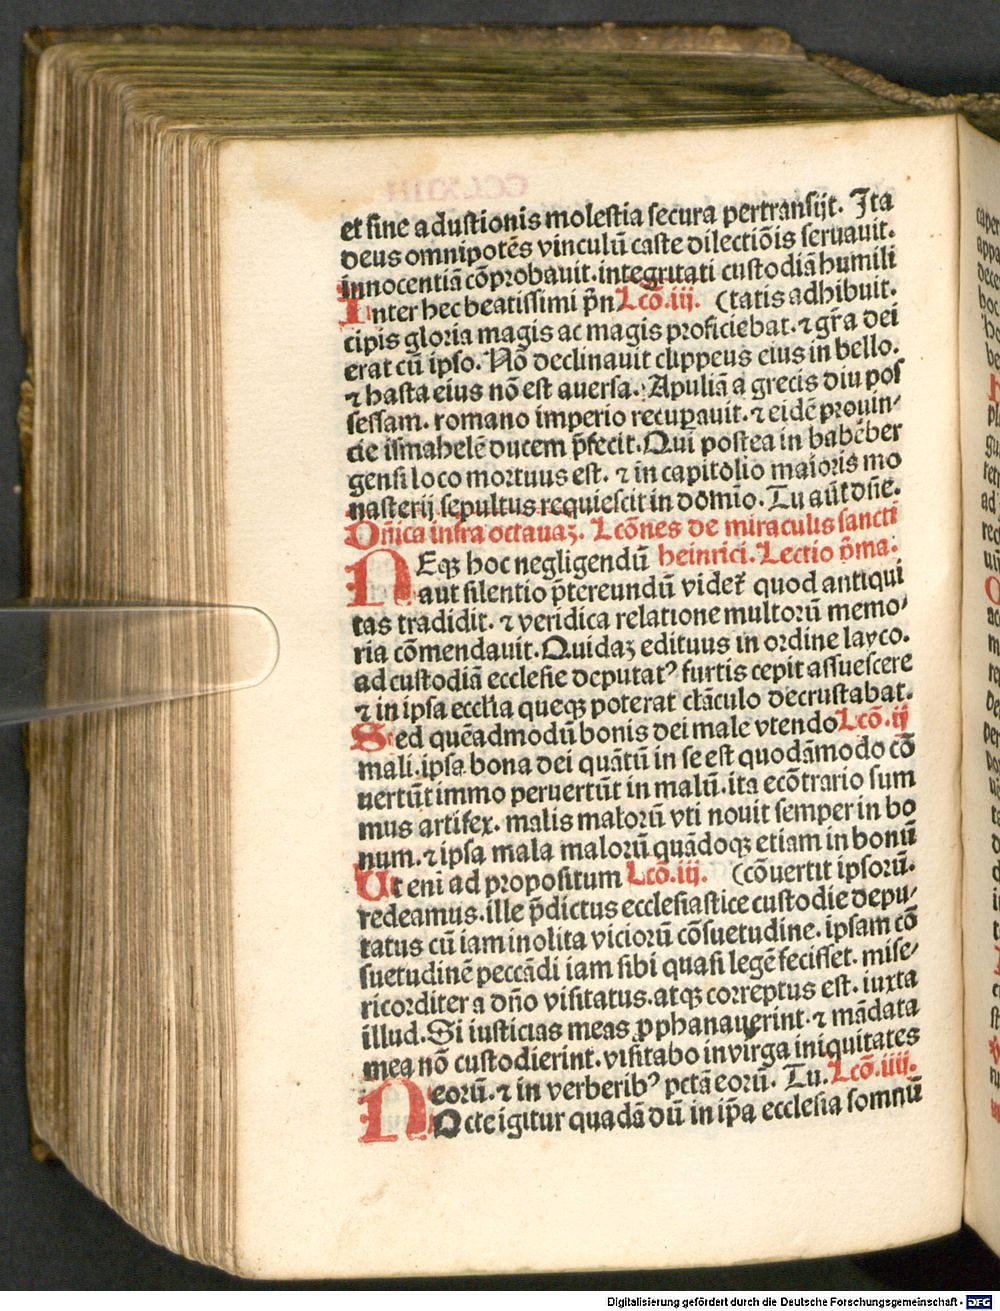 et sine adustionis molestia secura pertransijt. Ita
deus omnipotēs vinculū caste dilectiōis seruauit.
innocentiā cōprobauit. integritati custodiā humili
Inter hec beatissimi p̄n Lcō.iij. (tatis adhibuit.
cipis gloria magis ac magis proficiebat. ⁊ gr̄a dei
erat cū ipso. Nō declinauit clippeus eius in bello.
⁊ hasta eius nō est auersa. Apuliā a grecis diu pos
sessam. romano imperio recuꝑauit. ⁊ eidē prouin-
cie ismahelē ducem p̄fecit. Qui postea in babēber
gensi loco mortuus est. ⁊ in capitolio maioris mo
nasterij sepultus requiescit in domīo. Tu aūt dn̄e.
Dn̄ica infra octauaꝫ. Lcōnes de miraculis sancti
NEqꝫ hoc negligendū heinrici. Lectio p̄ma.
aut silentio p̄tereundū videt᷑ quod antiqui
tas tradidit. ⁊ veridica relatione multorū memo-
ria cōmendauit. Quidaꝫ edituus in ordine layco.
ad custodiā ecclesie deputatꝰ furtis cepit assuescere
⁊ in ipsa ecclīa queqꝫ poterat clāculo decrustabat.
Sed quēadmodū bonis dei male vtendo Lcō.ij
mali. ipsa bona dei quātū in se est quodāmodo cō
uertūt immo peruertūt in malū. ita ecōtrario sum
mus artifex. malis malorū vti nouit semper in bo
num. ⁊ ipsa mala malorū quādoqꝫ etiam in bonū
Ut enī ad propositum Lcō.iij. (cōuertit ipsorū.
redeamus. ille p̄dictus ecclesiastice custodie depu-
tatus cū iam inolita viciorū cōsuetudine. ipsam cō
suetudinē peccādi iam sibi quasi legē fecisset. mise-
ricorditer a dn̄o visitatus. atqꝫ correptus est. iuxta
illud. Si iusticias meas ꝓphanauerint. ⁊ mādata
mea nō custodierint. visitabo in virga iniquitates
eorū. ⁊ in verberibꝰ pctā eorū. Tu. Lcō.iiij.
NOcte igitur quadā dū in ip̄a ecclesia somnū
Digitalisierung gefördert durch die Deutsche Forschungsgemeinschaft - DFG